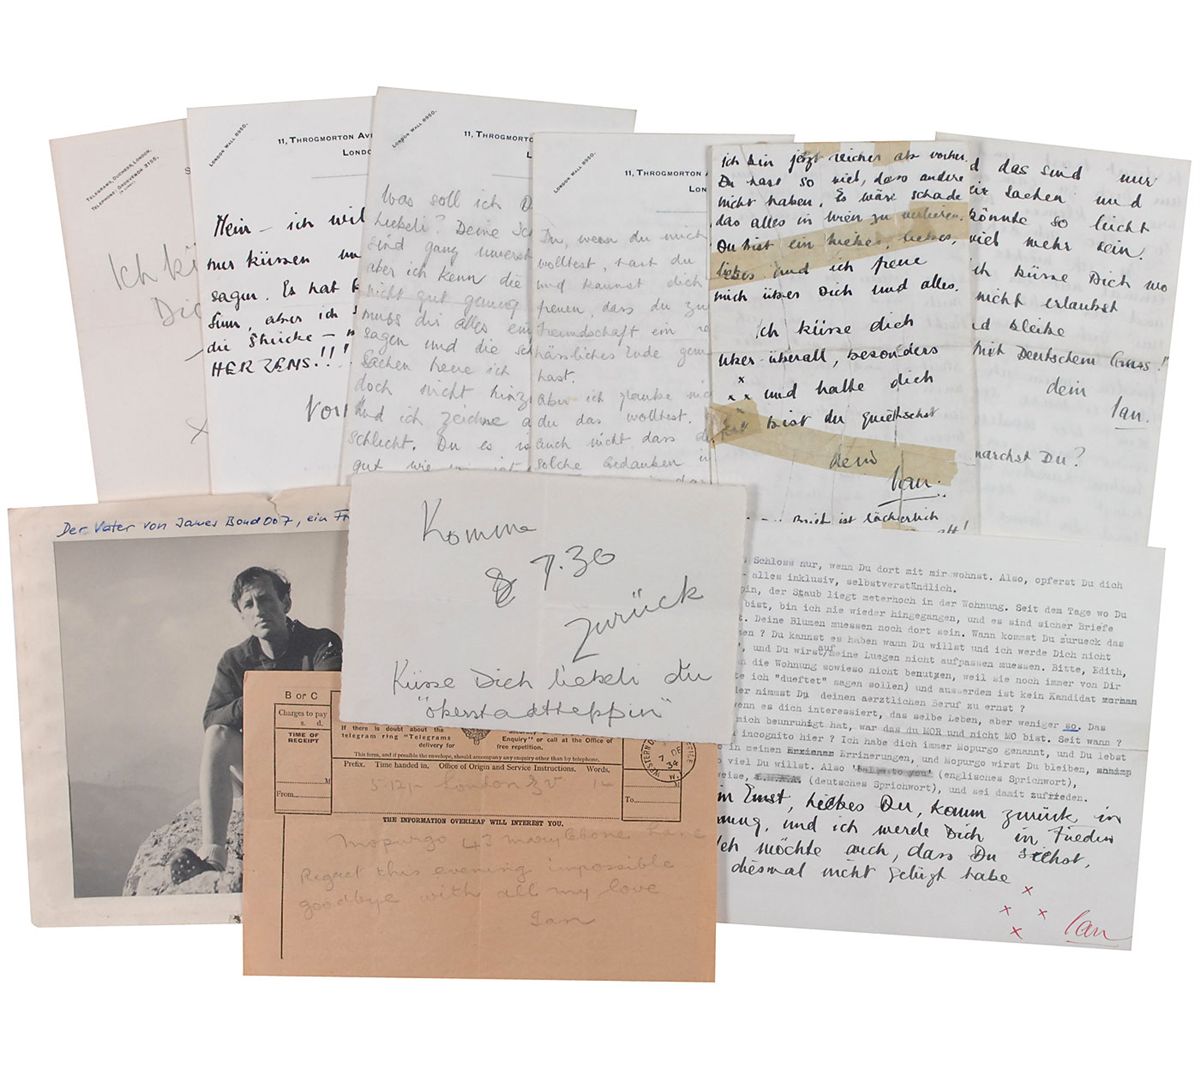 TELEGRAMS, DUCHESS, LONDON.
TELEPHONE: GROSVENOR 3155.
Ich kü
Dic
x
LONDON WALL 8950.
11, THROGMORTON AV
LONDO
Mein – ich wil
nur küssen un
sagen. Es hat k
Sinn, aber ich s
die Stücke – m
HERZENS!!!
Vor
LONDON WALL 8950.
11, THROGMORTON
L
Was soll ich D
liebeli? Deine
sind ganz
aber ich kenn die
nicht gut genug
muss dir alles ein
sagen und die sch
Sachen
doch nicht hinz
und ich zeichne a
schlicht. Du es w
gut wie
LONDON WALL 8950.
11, THROGMORTON A
LON
Du, wenn du mich
wolltest, hast du
und kannst dich
freuen, dass du zu
Freundschaft ein
hässliches Ende gem
hast.
Aber ich glaube nic
du das wolltest.
auch nicht dass d
solche Gedanken i
ich bin jetzt reicher als vorher.
Du hast so viel, dass andere
nicht haben. Es wäre schade
das alles in Wien zu verlieren.
Du bist ein liebes, liebes,
liebes und ich freue
mich über Dich und alles.
Ich küsse dich
über-überall, besonders
x
x x und halte dich
x
bist du quietschst
dein
Ian.
mich ist lächerlich
d das sind nur
Sachen und
könnte so leicht
viel mehr sein.
ch küsse Dich wo
nicht erlaubst
nd bleibe
mit Deutschem Gruss!!
dein Ian.
machst Du?
Der Vater von James Bond 007, ein Fr
Komme
8 7.30
zurück
Küsse Dich liebeli du
"oberstadtheppin"
B or C
Charges to pay
s. d.
TIME OF
RECEIPT
M
From
If there is doubt about the
telegram ring "Telegrams
delivery for
Enquiry" or call at the Office of
free repetition.
This form, and if possible the envelope, should accompany any enquiry other than by telephone.
Prefix. Time handed in. Office of Origin and Service Instructions. Words.
M
To
5.12p London 14
WESTERN
7 DE
34
W.
THE INFORMATION OVERLEAF WILL INTEREST YOU.
Mopurgo 43 Marylebone Lane
Regret this evening impossible
goodbye with all my love
Ian
Schloss nur, wenn Du dort mit mir wohnst. Also, opferst Du dich
- alles inklusiv, selbstverständlich.
pin, der Staub liegt meterhoch in der Wohnung. Seit dem Tage wo Du
bist, bin ich nie wieder hingegangen, und es sind sicher Briefe
t. Deine Blumen muessen noch dort sein. Wann kommst Du zurueck das
en ? Du kannst es haben wann Du willst und ich werde Dich nicht
auf
', und Du wirst meine Luegen nicht aufpassen muessen. Bitte, Edith,
n die Wohnung sowieso nicht benutzen, weil sie noch immer von Dir
te ich "dueftet" sagen sollen) und ausserdem ist kein Kandidat
der nimmst Du deinen aerztlichen Beruf zu ernst ?
wenn es dich interessiert, das selbe Leben, aber weniger so. Das
mich beunruhigt hat, war das du MOR und nicht MO bist. Seit wann ?
incognito hier ? Ich habe dich immer Mopurgo genannt, und Du lebst
o in meinen Errinerungen, und Mopurgo wirst Du bleiben,
o viel Du willst. Also (englisches Sprichwort),
weise, (deutsches Sprichwort), und sei damit zufrieden.
Ernst, liebes Du, komm zurück, in
nung, und ich werde Dich in Frieden
Ich möchte auch, dass Du siehst,
diesmal nicht gelügt habe
x
x x
x
Ian